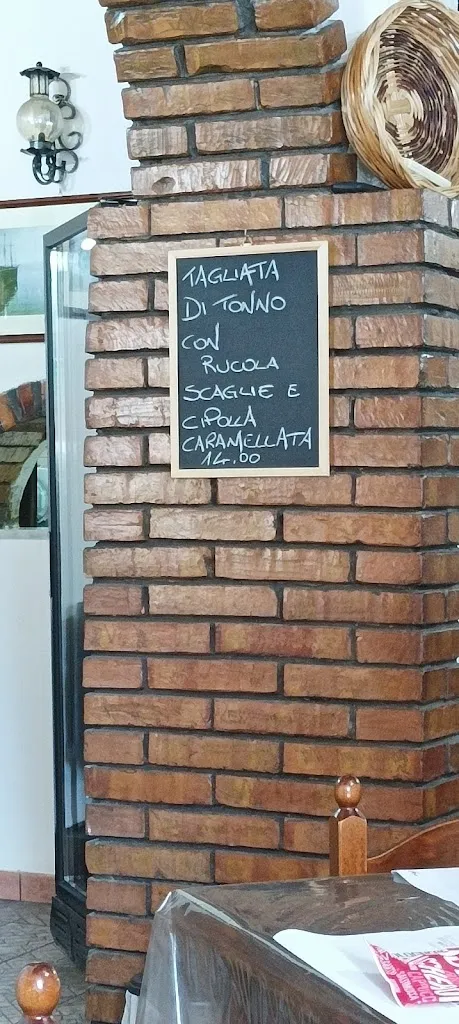 TAGLIATA
DI TONNO
CON
RUCOLA
SCAGLIE E
CIPOLLA
CARAMELLATA
14.00